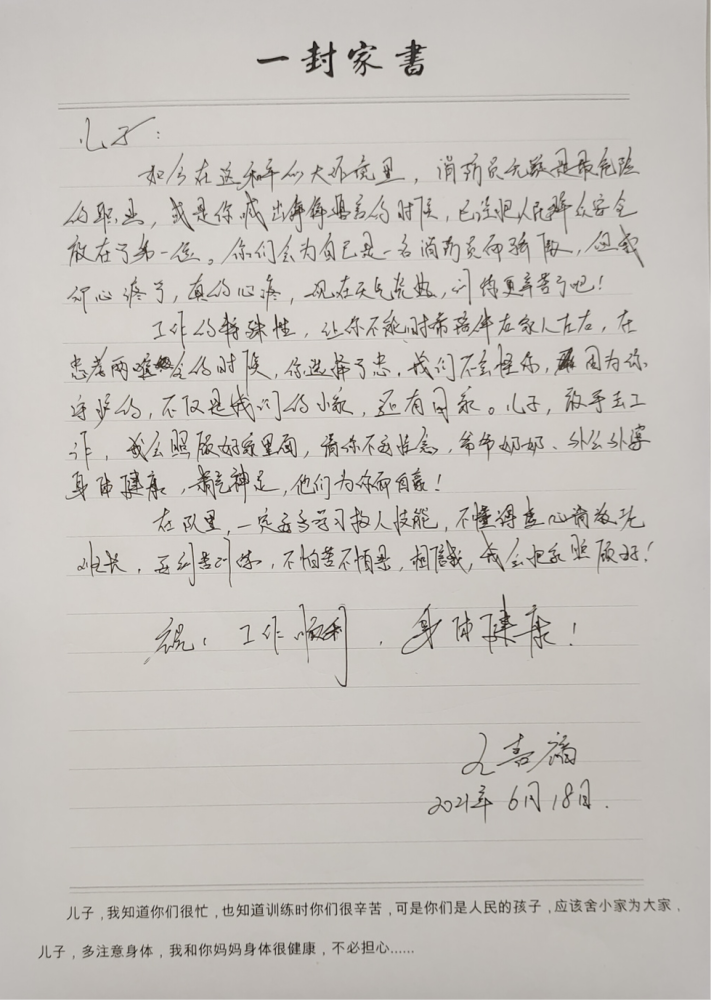 一封家書
儿子：
如今在这和平的大环境里，消防员无疑是最危险
的职业，或是你喊出铮铮誓言的时候，已经把人民群众安全
放在了第一位。你们会为自己是一名消防员而骄傲，但我
却心疼了，真的心疼，现在天气炎热，训练更辛苦了吧！
工作的特殊性，让你不能时常陪伴在家人左右，在
忠孝两难全的时候，你选择了忠，我们不会怪你，因为你
守护的，不仅是我们的小家，还有国家。儿子，放手去工
作，我会照顾好家里面，请你不要惦念，爷爷奶奶、外公外婆
身体健康，精气神足，他们为你而自豪！
在队里，一定要多学习救人技能，不懂得虚心请教
班长，要刻苦训练，不怕苦不怕累，相信我，我会把家照顾好！
祝：工作顺利，身体健康！
2021年6月18日.
儿子，我知道你们很忙，也知道训练时你们很辛苦，可是你们是人民的孩子，应该舍小家为大家，
儿子，多注意身体，我和你妈妈身体很健康，不必担心......